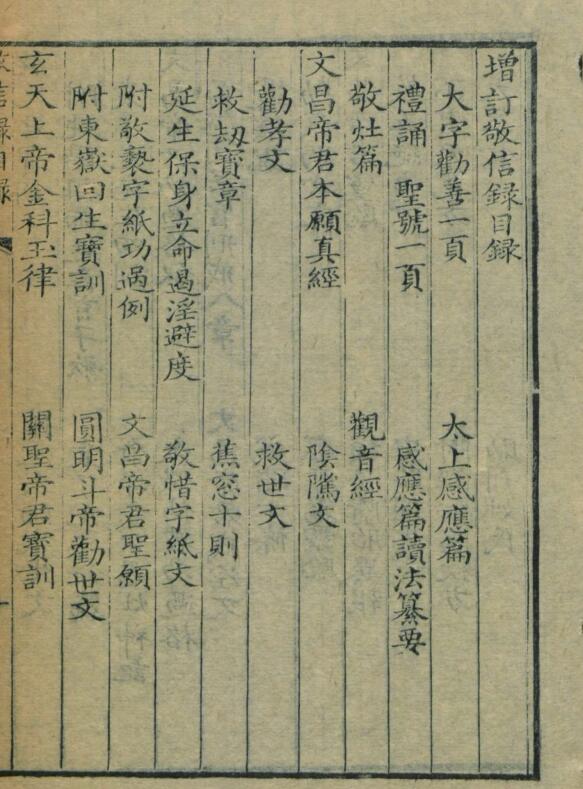 增訂敬信録目録
大字勸善一頁　太上感應篇
禮誦　聖號一頁　感應篇讀法纂要
敬灶篇　觀音經
文昌帝君本願真經　陰隲文
勸孝文　救世文
救刼寶章　蕉窓十則
延生保身立命遏淫避度　敬惜字紙文
附敬褻字紙功過例　文昌帝君聖願
附東嶽回生寶訓　圓明斗帝勸世文
玄天上帝金科玉律　關聖帝君寶訓